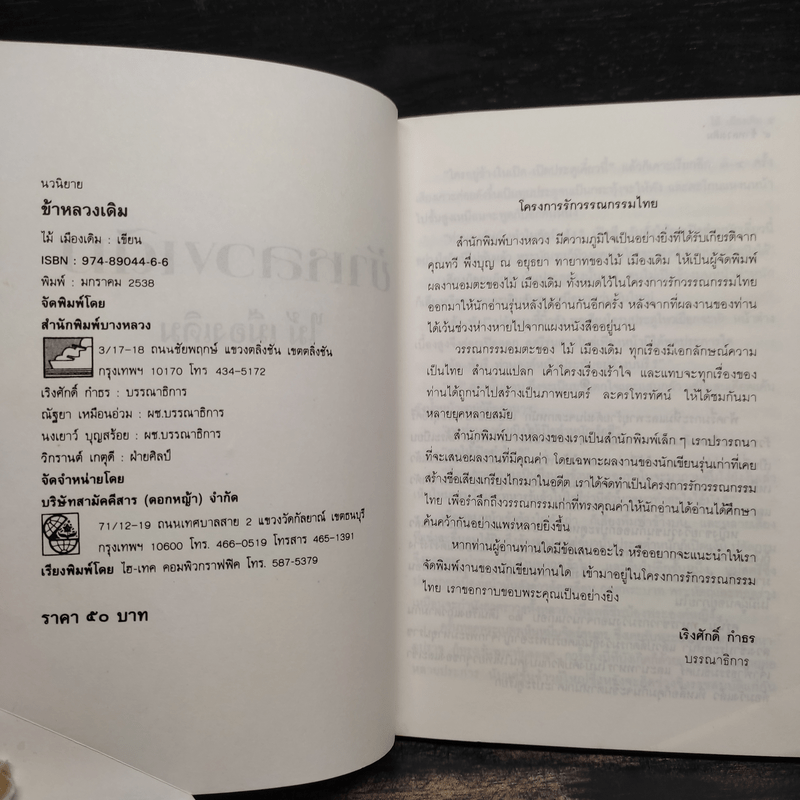 นวนิยาย
ข้าหลวงเดิม
ไม้ เมืองเดิม : เขียน
ISBN : 974-89044-6-6
พิมพ์ : มกราคม 2538
จัดพิมพ์โดย
สำนักพิมพ์บางหลวง
3/17-18 ถนนชัยพฤกษ์ แขวงตลิ่งชัน เขตตลิ่งชัน
กรุงเทพฯ 10170 โทร 434-5172
เริงศักดิ์ กำธร : บรรณาธิการ
ณัฐยา เหมือนอ่วม : ผช.บรรณาธิการ
นงเยาว์ บุญสร้อย : ผช.บรรณาธิการ
วิกรานต์ เกตุดี : ฝ่ายศิลป์
จัดจำหน่ายโดย
บริษัทสามัคคีสาร (ดอกหญ้า) จำกัด
71/12-19 ถนนเทศบาลสาย 2 แขวงวัดกัลยาณ์ เขตธนบุรี
กรุงเทพฯ 10600 โทร. 466-0519 โทรสาร 465-1391
เรียงพิมพ์โดย ไฮ-เทค คอมพิวกราฟฟิค โทร. 587-5379
ราคา ๕๐ บาท
โครงการรักวรรณกรรมไทย
สำนักพิมพ์บางหลวง มีความภูมิใจเป็นอย่างยิ่งที่ได้รับเกียรติจาก
คุณทวี พึ่งบุญ ณ อยุธยา ทายาทของไม้ เมืองเดิม ให้เป็นผู้จัดพิมพ์
ผลงานอมตะของไม้ เมืองเดิม ทั้งหมดไว้ในโครงการรักวรรณกรรมไทย
ออกมาให้นักอ่านรุ่นหลังได้อ่านกันอีกครั้ง หลังจากที่ผลงานของท่าน
ได้เว้นช่วงห่างหายไปจากแผงหนังสืออยู่นาน
วรรณกรรมอมตะของ ไม้ เมืองเดิม ทุกเรื่องมีเอกลักษณ์ความ
เป็นไทย สำนวนแปลก เค้าโครงเรื่องเร้าใจ และแทบจะทุกเรื่องของ
ท่านได้ถูกนำไปสร้างเป็นภาพยนตร์ ละครโทรทัศน์ ให้ได้ชมกันมา
หลายยุคหลายสมัย
สำนักพิมพ์บางหลวงของเราเป็นสำนักพิมพ์เล็กๆ เราปรารถนา
ที่จะเสนอผลงานที่มีคุณค่า โดยเฉพาะผลงานของนักเขียนรุ่นเก่าที่เคย
สร้างชื่อเสียงเกรียงไกรมาในอดีต เราได้จัดทำเป็นโครงการรักวรรณกรรม
ไทย เพื่อรำลึกถึงวรรณกรรมเก่าที่ทรงคุณค่าให้นักอ่านได้อ่านได้ศึกษา
ค้นคว้ากันอย่างแพร่หลายยิ่งขึ้น
หากท่านผู้อ่านท่านใดมีข้อเสนออะไร หรืออยากจะแนะนำให้เรา
จัดพิมพ์งานของนักเขียนท่านใด เข้ามาอยู่ในโครงการรักวรรณกรรม
ไทย เราขอกราบขอบพระคุณเป็นอย่างยิ่ง
เริงศักดิ์ กำธร
บรรณาธิการ